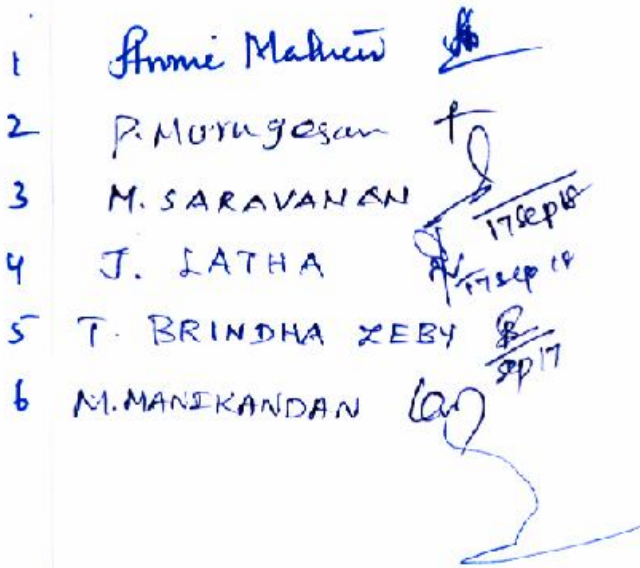 1 Annie Mathew
2 P. Murugesan
3 M. SARAVANAN 17 Sep 18
4 J. LATHA 17 Sep 18
5 T. BRINDHA ZEBY Sep 17
6 M. MANIKANDAN